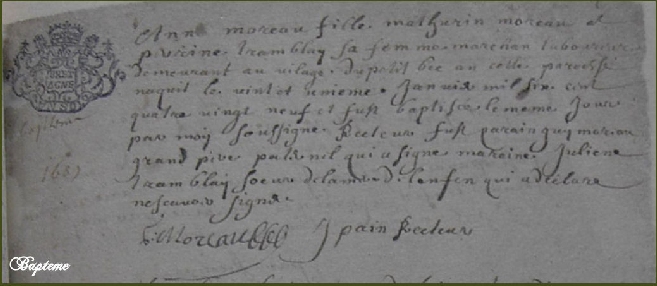 Ann moreau fille mathurin moreau et
perrine tramblay sa femme marchan labourer
demeurant au vilage du petit bee au cette paroisse
naquit le vintet unieme Janvie mil six cent
quatre vingt neuf et fust baptisee le meme Jour
par moy soussigne Recteur fust parain guy moreau
grand pere paternel qui a signe maraine Juliene
tramblay soeur de la mere de lenfen qui a declare
ne scavoir signe.
G: Moreau J pain Recteur
1689
Bapteme